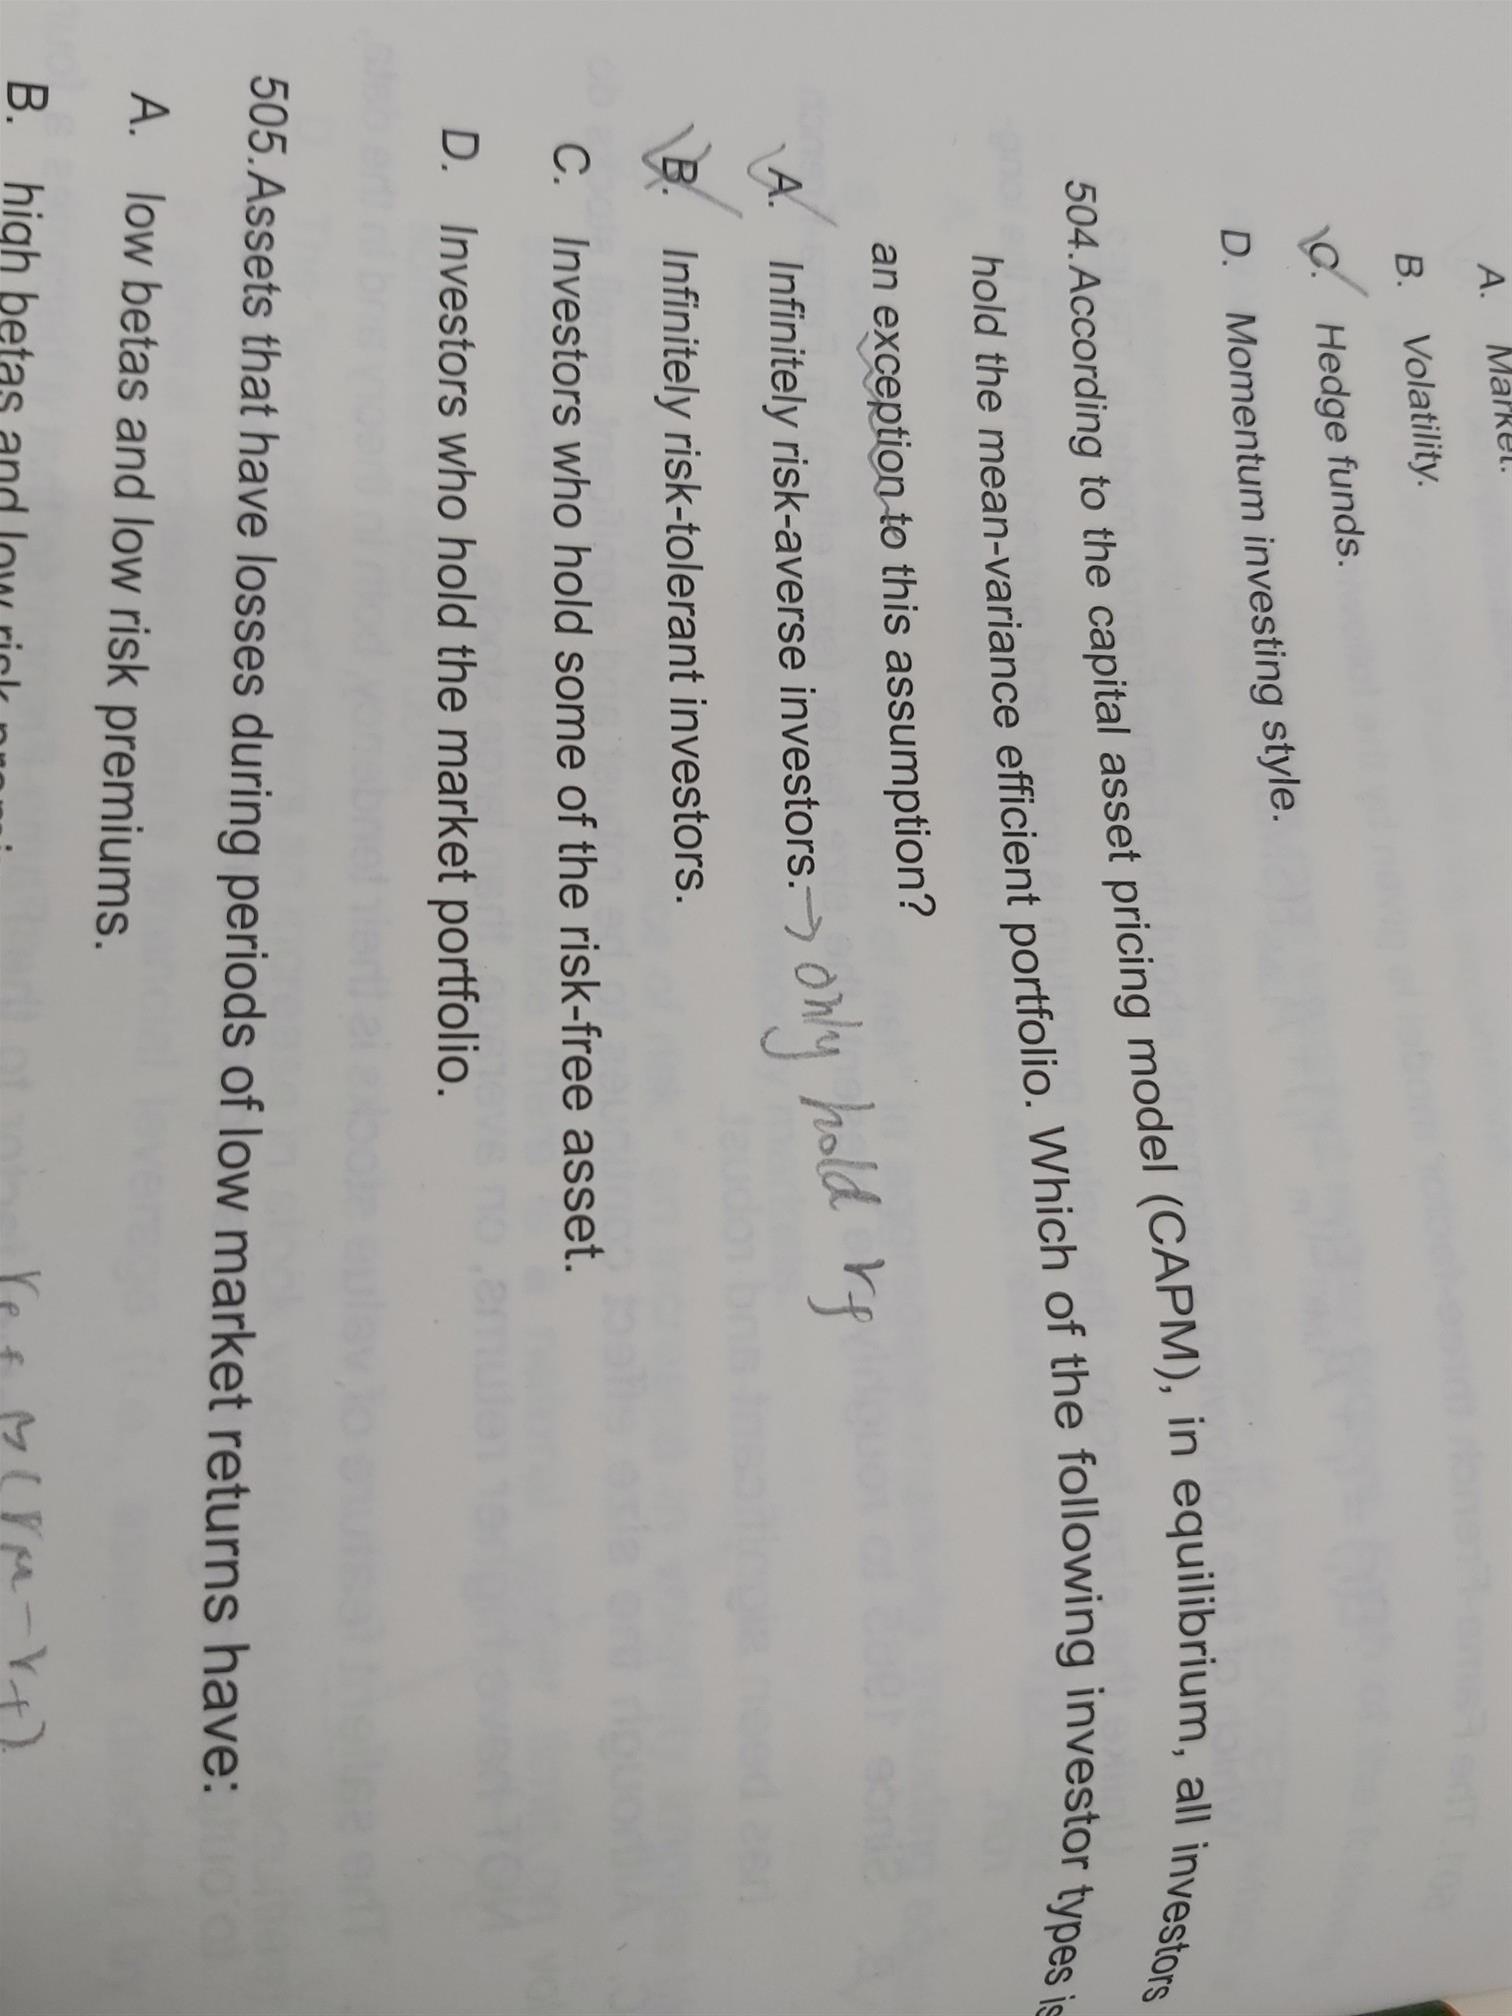 A. Market.
B. Volatility.
C. Hedge funds.
D. Momentum investing style.
504. According to the capital asset pricing model (CAPM), in equilibrium, all investors
hold the mean-variance efficient portfolio. Which of the following investor types is
an exception to this assumption?
A. Infinitely risk-averse investors. → only hold rf
B. Infinitely risk-tolerant investors.
C. Investors who hold some of the risk-free asset.
D. Investors who hold the market portfolio.
505. Assets that have losses during periods of low market returns have:
A. low betas and low risk premiums.
B. high betas and low risk